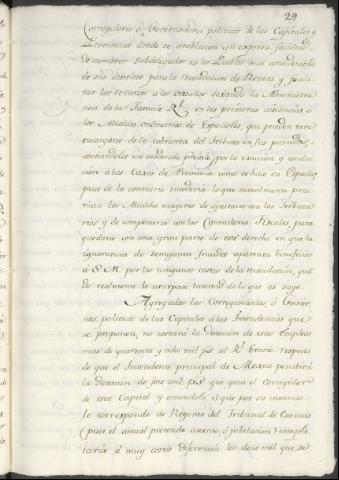 29
Corregidores ó Governadores politicos de las Capitales y
Provincias donde se establescan con expresa facultad
de nombrar Subdelegados en los Pueblos mas considerables
de sus distritos para la recaudacion de Rentas y facili-
tar los recursos á los vasallos dexando la Administra-
cion de la Justicia Rl. en las primeras instancias á
los Alcaldes ordinarios de Españoles, que pueden tam
encargarse de la cobranza del Tributo en sus partidos,
abonandoles un moderado premio por la exaccion y conduc-
cion á las Caxas de Provincia como se hace en España,
pues de lo contrario sucederia lo que actualmente prac-
tican los Alcaldes mayores de ajustarse con los Tributa-
rios y de componerse con los Contadores Fiscales, para
quedarse con una gran parte de este derecho en que la
ignorancia de semejantes fraudes aparenta beneficios
á S. M. por las ningunas costas de la recaudacion, quan-
do realmente le usurpan la mitad de lo que es suyo.
Agregadas las Corregimientos, ó Gobier-
nos, politicos de las Capitales á las Intendencias que
se proponen, no costará la Dotacion de estos Empleos
mas de quarenta y ocho mil ps. al Rl. Erario respecto
de que el Intendente principal de Mexico percibirá
la Dotacion de seis mil ps. que goza el Corregidor
de esta Capital y uniendole lo que por su instituto
le corresponde de Regente del Tribunal de Cuentas
(pues el actual pretende ascenso, ó jubilacion) comple-
taria á muy corta diferencia los doce mil que se